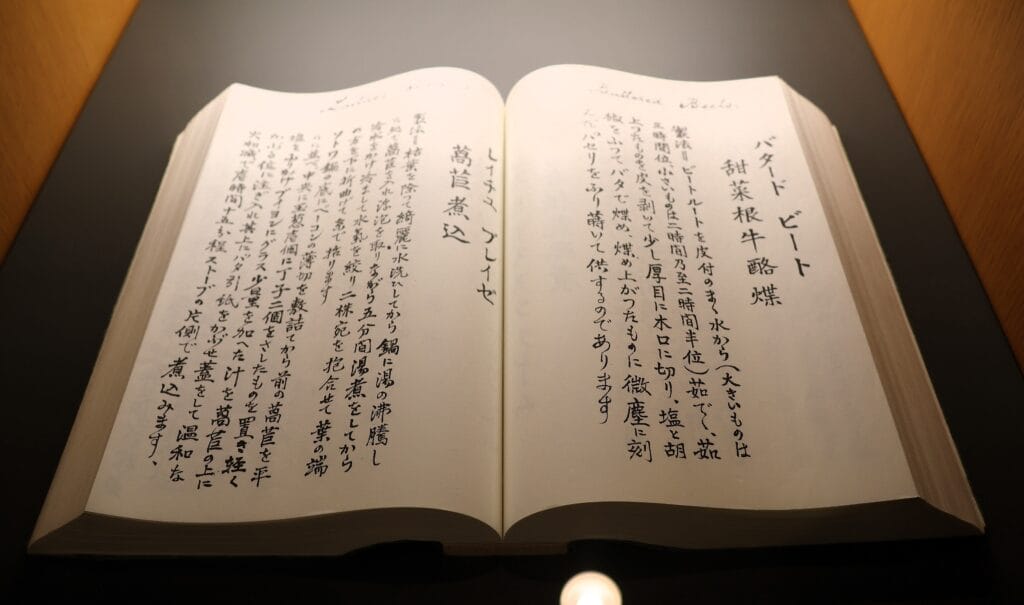 Buttered Beets.
バタード ビート
甜菜根牛酪煠
製法=ビートルートを皮付のまゝ水から(大きいものは
三時間位小さいものは二時間乃至二時間半位)茹でゝ、茹
上つたものを皮を剥いて少し厚目に木口に切り、塩と胡
椒をふつて、バタで煠め、煠め上がつたものに微塵に刻
んだパセリをふり蒔いて供するのであります
レイチス ブレイゼ
萵苣煮込
製法=枯葉を除つて綺麗に水洗ひしてから鍋に湯の沸騰し
に萵苣を入れ浮泡を取りながら五分間湯煮をしてから
冷水をかけ冷まして水氣を絞り二株宛を抱合せて葉の端
の方を下に折曲げて糸で括ります
ソトワ鍋の底にベーコンの薄切を敷詰てから前の萵苣を平
に並べ中央に玉葱壱個に丁子二個をさしたものを置き軽く
塩をふりかけブイヨンにグラス少量を加へた汁を萵苣の上に
かぶる位に注ぎ入れ其上にバタ引紙をかぶせ蓋をして温和な
火加減で壱時間十五分程ストーブの片側で煮込みます、